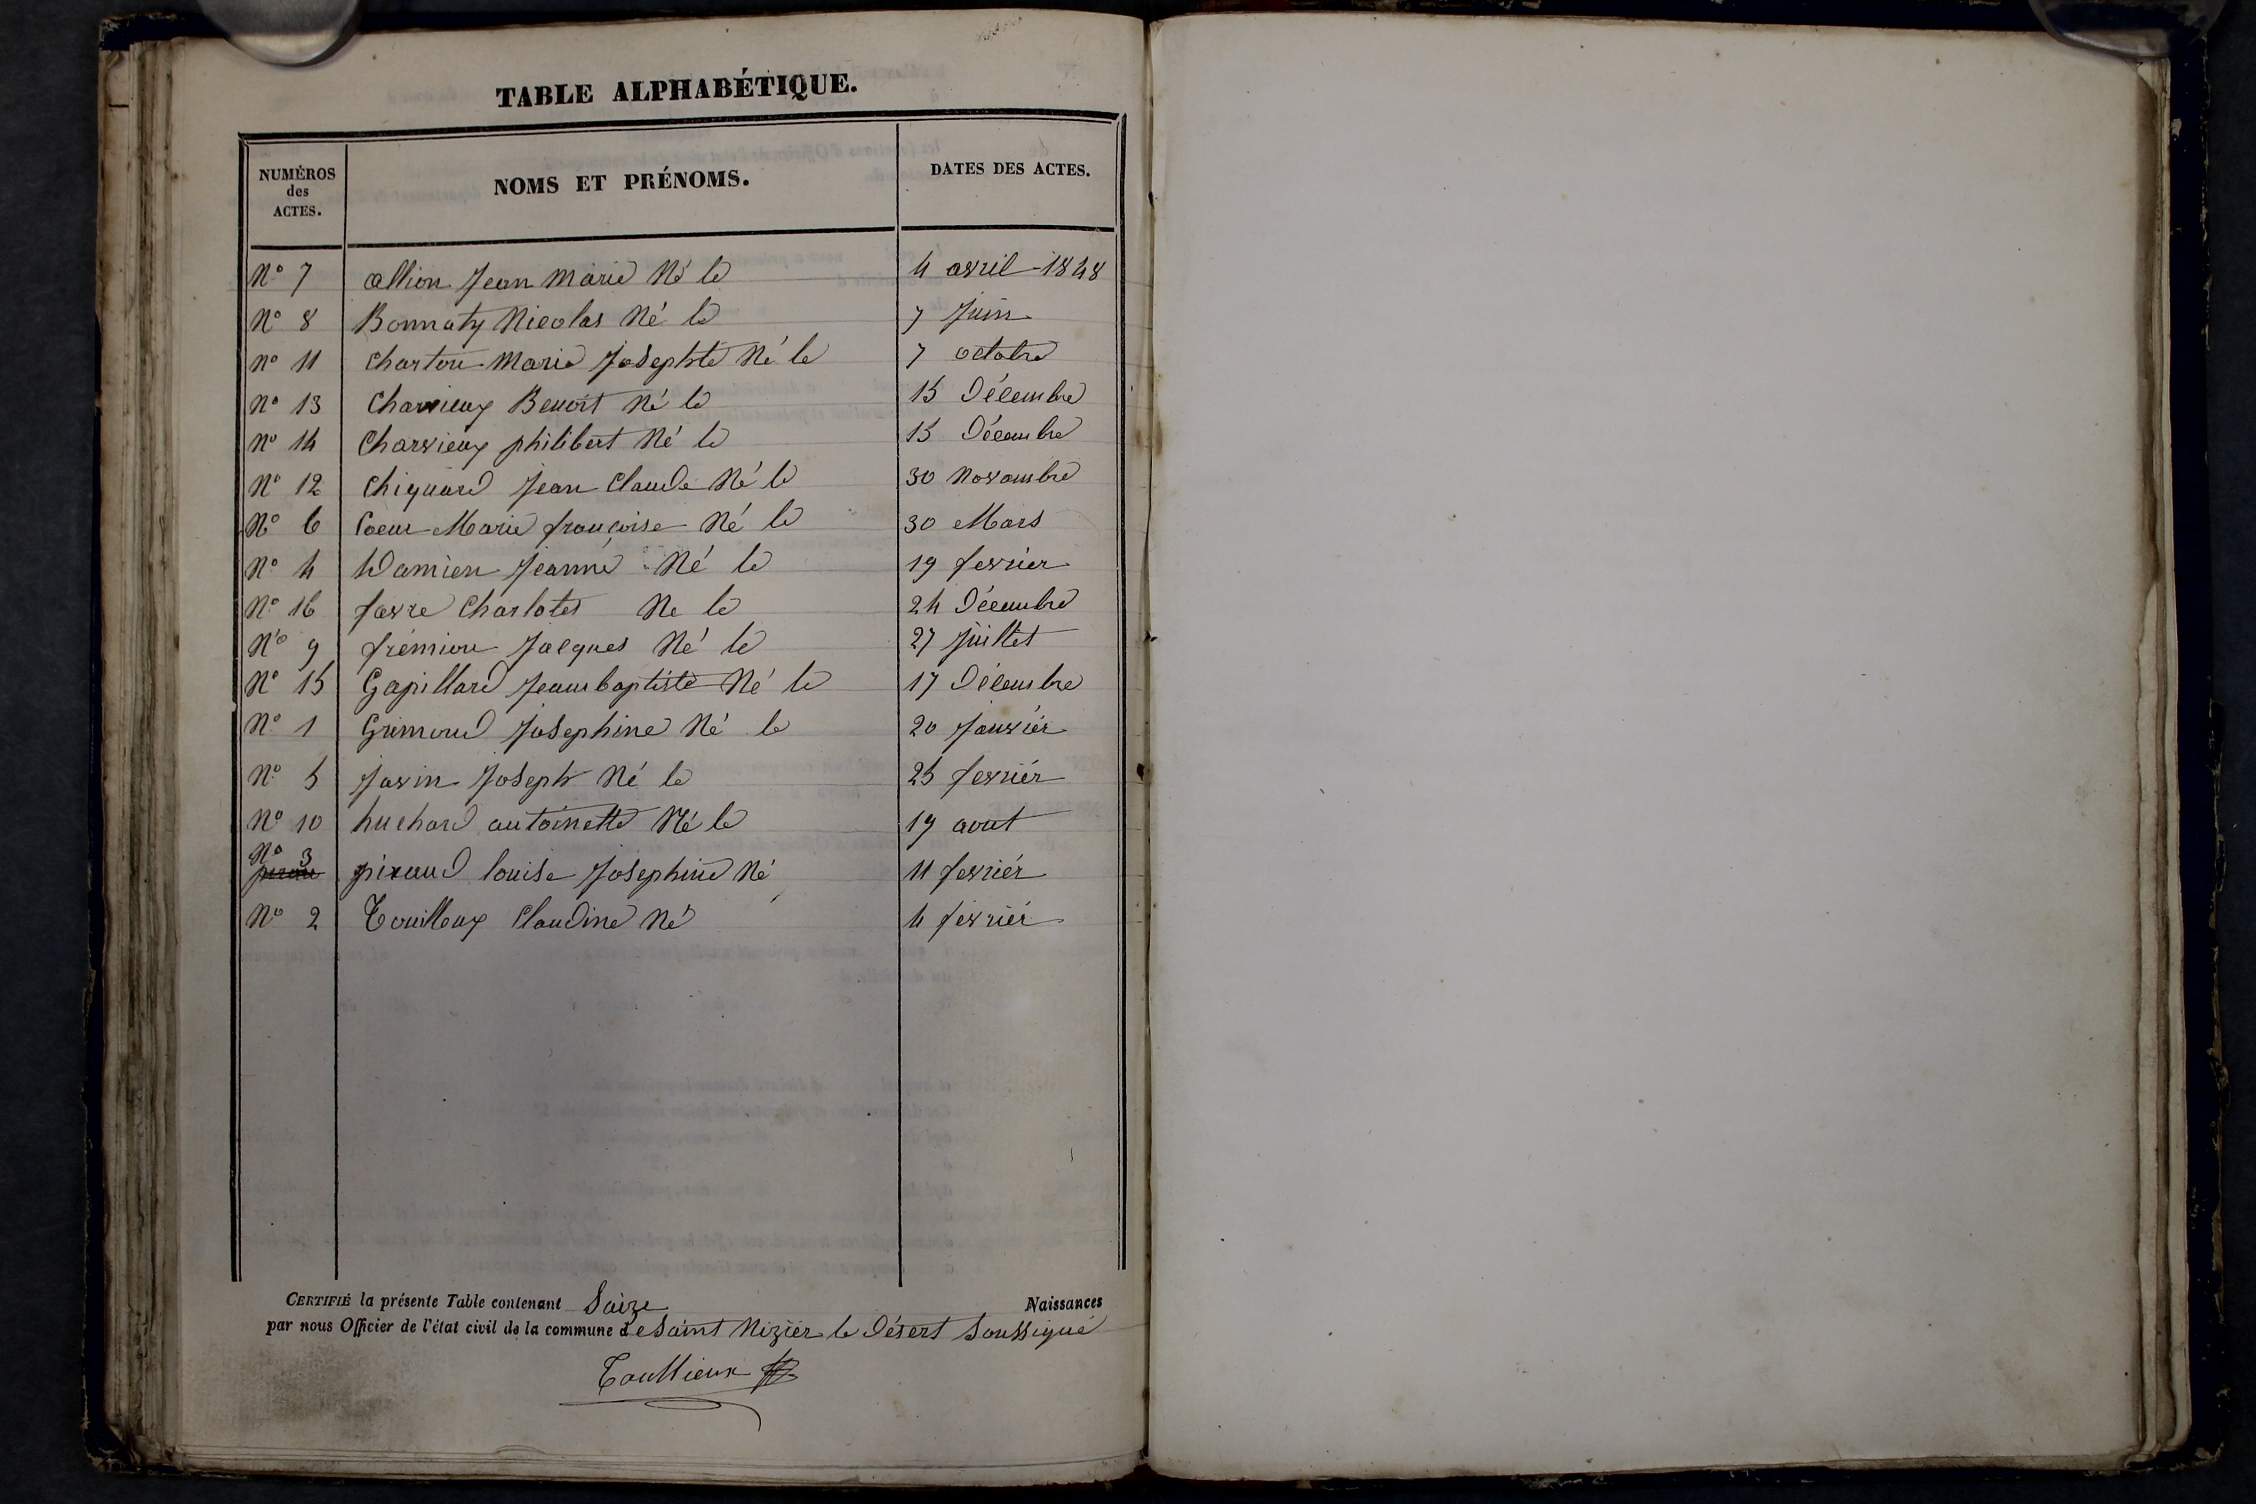 TABLE ALPHABÉTIQUE.
NUMÉROS des ACTES. NOMS ET PRÉNOMS. DATES DES ACTES.
N° 7 allion Jean Marie Né le 4 avril 1848
N° 8 Bonnaty Nicolas Né le 7 Juin
n° 11 charton Marie Josephte Né le 7 octobre
N° 13 Charvieux Benoit Né le 15 Décembre
N° 14 Charvieux philibert Né le 15 Décembre
N° 12 Chiquard Jean Claude Né le 30 Novembre
N° 6 Coeur Marie françoise Né le 30 Mars
N° 4 Damien Jeanne Né le 19 fevrier
N° 16 favre Charlotes Ne le 24 Décembre
N° 9 frémion Jacques Né le 27 Juillet
N° 15 Gapillard Jeanbaptiste Né le 17 Décembre
N° 1 Grimoud Josephine Né le 20 Janvier
N° 5 Javin Joseph Né le 25 fevriér
N° 10 huchard antoinette Né le 19 aout
N° 3 piraud louise Josephine Né 11 fevriér
N° 2 Touilleux Claudine Né 4 fevriér
CERTIFIÉ la présente Table contenant Saize Naissances
par nous Officier de l'état civil de la commune de Saint Nizier le Désert Soussigné
Toullieux